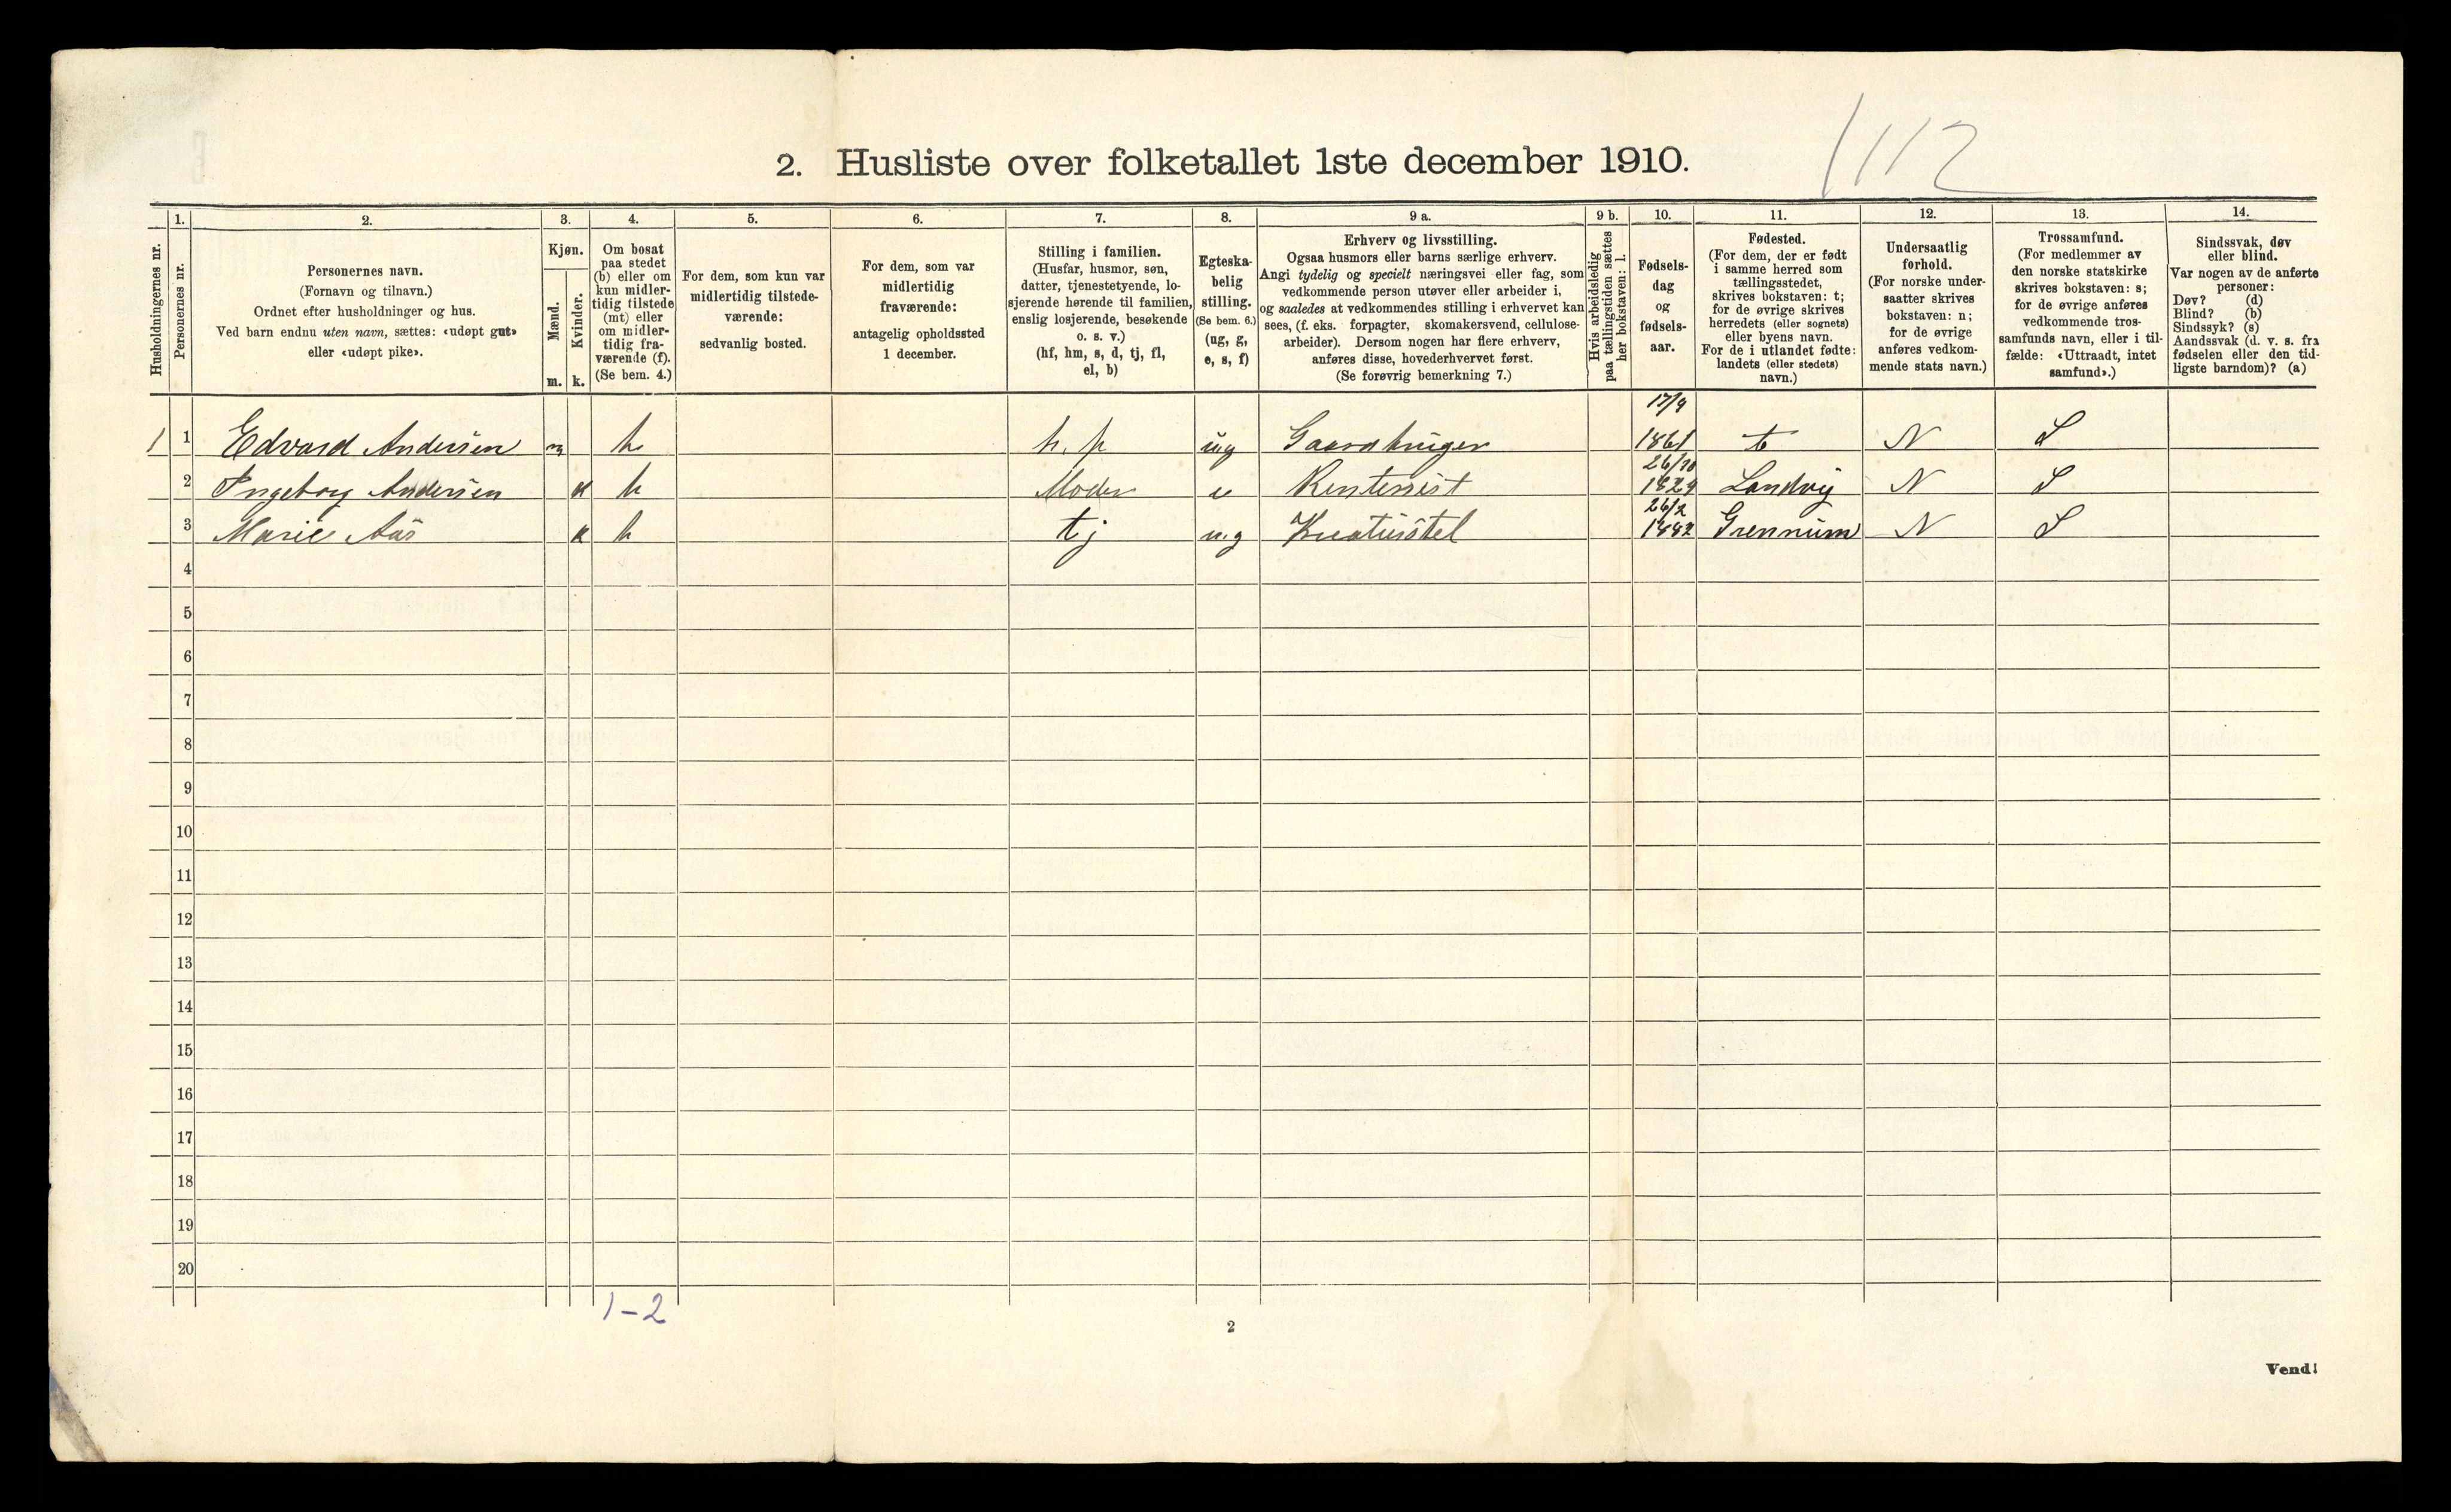 1112
2. Husliste over folketallet 1ste december 1910.
Husholdningernes nr.
1.
Personernes nr.
2.
Personernes navn.
(Fornavn og tilnavn.)
Ordnet efter husholdninger og hus.
Ved barn endnu uten navn, sættes: «udøpt gut»
eller «udøpt pike».
3.
Kjøn.
Mænd.
m.
Kvinder.
k.
4.
Om bosat
paa stedet
(b) eller om
kun midler-
tidig tilstede
(mt) eller
om midler-
tidig fra-
værende (f).
(Se bem. 4.)
5.
For dem, som kun var
midlertidig tilstede-
værende:
sedvanlig bosted.
6.
For dem, som var
midlertidig
fraværende:
antagelig opholdssted
1 december.
7.
Stilling i familien.
(Husfar, husmor, søn,
datter, tjenestetyende, lo-
sjerende hørende til familien,
enslig losjerende, besøkende
o. s. v.)
(hf, hm, s, d, tj, fl,
el, b)
8.
Egteska-
belig
stilling.
(Se bem. 6.)
(ug, g,
e, s, f)
9 a.
Erhverv og livsstilling.
Ogsaa husmors eller barns særlige erhverv.
Angi tydelig og specielt næringsvei eller fag, som
vedkommende person utøver eller arbeider i,
og saaledes at vedkommendes stilling i erhvervet kan
sees, (f. eks. forpagter, skomakersvend, cellulose-
arbeider). Dersom nogen har flere erhverv,
anføres disse, hovederhvervet først.
(Se forøvrig bemerkning 7.)
9 b.
Hvis arbeidsledig
paa tællingstiden sættes
her bokstaven: l.
10.
Fødsels-
dag
og
fødsels-
aar.
11.
Fødested.
(For dem, der er født
i samme herred som
tællingsstedet,
skrives bokstaven: t;
for de øvrige skrives
herredets (eller sognets)
eller byens navn.
For de i utlandet fødte:
landets (eller stedets)
navn.)
12.
Undersaatlig
forhold.
(For norske under-
saatter skrives
bokstaven: n;
for de øvrige
anføres vedkom-
mende stats navn.)
13.
Trossamfund.
(For medlemmer av
den norske statskirke
skrives bokstaven: s;
for de øvrige anføres
vedkommende tros-
samfunds navn, eller i til-
fælde: «Uttraadt, intet
samfund».)
14.
Sindssvak, døv
eller blind.
Var nogen av de anførte
personer:
Døv? (d)
Blind? (b)
Sindssyk? (s)
Aandssvak (d. v. s. fra
fødselen eller den tid-
ligste barndom)? (a)
1 1 Edvard Andersen m b h.f ug Gaardbruger 17/9 1861 t N S
2 Ingeborg Andersen k b Moder e Rentenist 26/10 1829 Landvig N S
3 Marie Aas k b tj ug Kreaturstel 26/2 1882 Grennum N S
4
5
6
7
8
9
10
11
12
13
14
15
16
17
18
19
20
1-2
2
Vend!